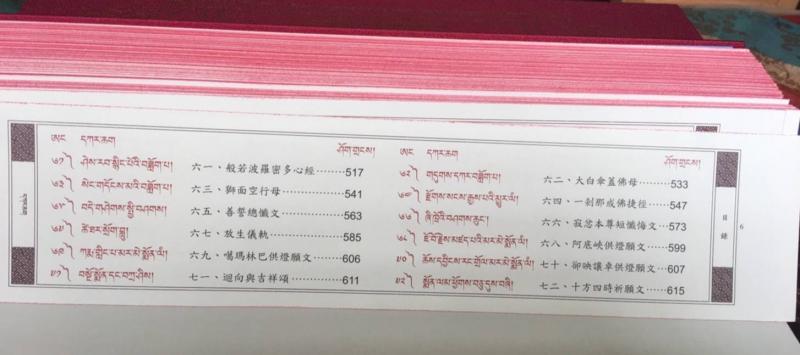 ཨང་ དཀར་ཆག ཤོག་གྲངས།
༦༡༽ ཤེས་རབ་སྙིང་པོའི་བཟློག་པ། 六一、般若波羅密多心經………517
༦༣༽ སེང་གདོངས་མའི་བཟློག་པ། 六三、獅面空行母………541
༦༥༽ བདེ་བཤེགས་སྤྱི་བཤགས། 六五、善誓總懺文………563
༦༧༽ ཚེ་ཐར་སྲོག་བླུ། 六七、放生儀軌………585
༦༩༽ ཀརྨ་གླིང་པ་མར་མེ་སྨོན་ལཾ། 六九、噶瑪林巴供燈願文……606
༧༡༽ བསྔོ་སྨོན་དང་བཀྲ་ཤིས། 七一、迴向與吉祥頌………611
ཨང་ དཀར་ཆག ཤོག་གྲངས།
༦༢༽ གདུགས་དཀར་བཟློག་པ། 六二、大白傘蓋佛母………533
༦༤༽ རྫོགས་སངས་རྒྱས་པའི་མྱུར་ལཾ། 六四、一剎那成佛捷徑………547
༦༦༽ ཞི་ཁྲོའི་བཤགས་ཆུང་། 六六、寂忿本尊短懺悔文……573
༦༨༽ ཇོ་བོ་རྗེས་མཛད་པའི་མར་མེ་སྨོན་ལཾ། 六八、阿底峽供燈願文………599
༧༠༽ ཆོས་དབྱིངས་རང་གྲོལ་མར་མེ་སྨོན་ལཾ། 七十、卻映讓卓供燈願文……607
༧༢༽ སྨོན་ལམ་ཕྱོགས་བཅུ་དུས་བཞི། 七二、十方四時祈願文………615
དཀར་ཆག
目錄
6